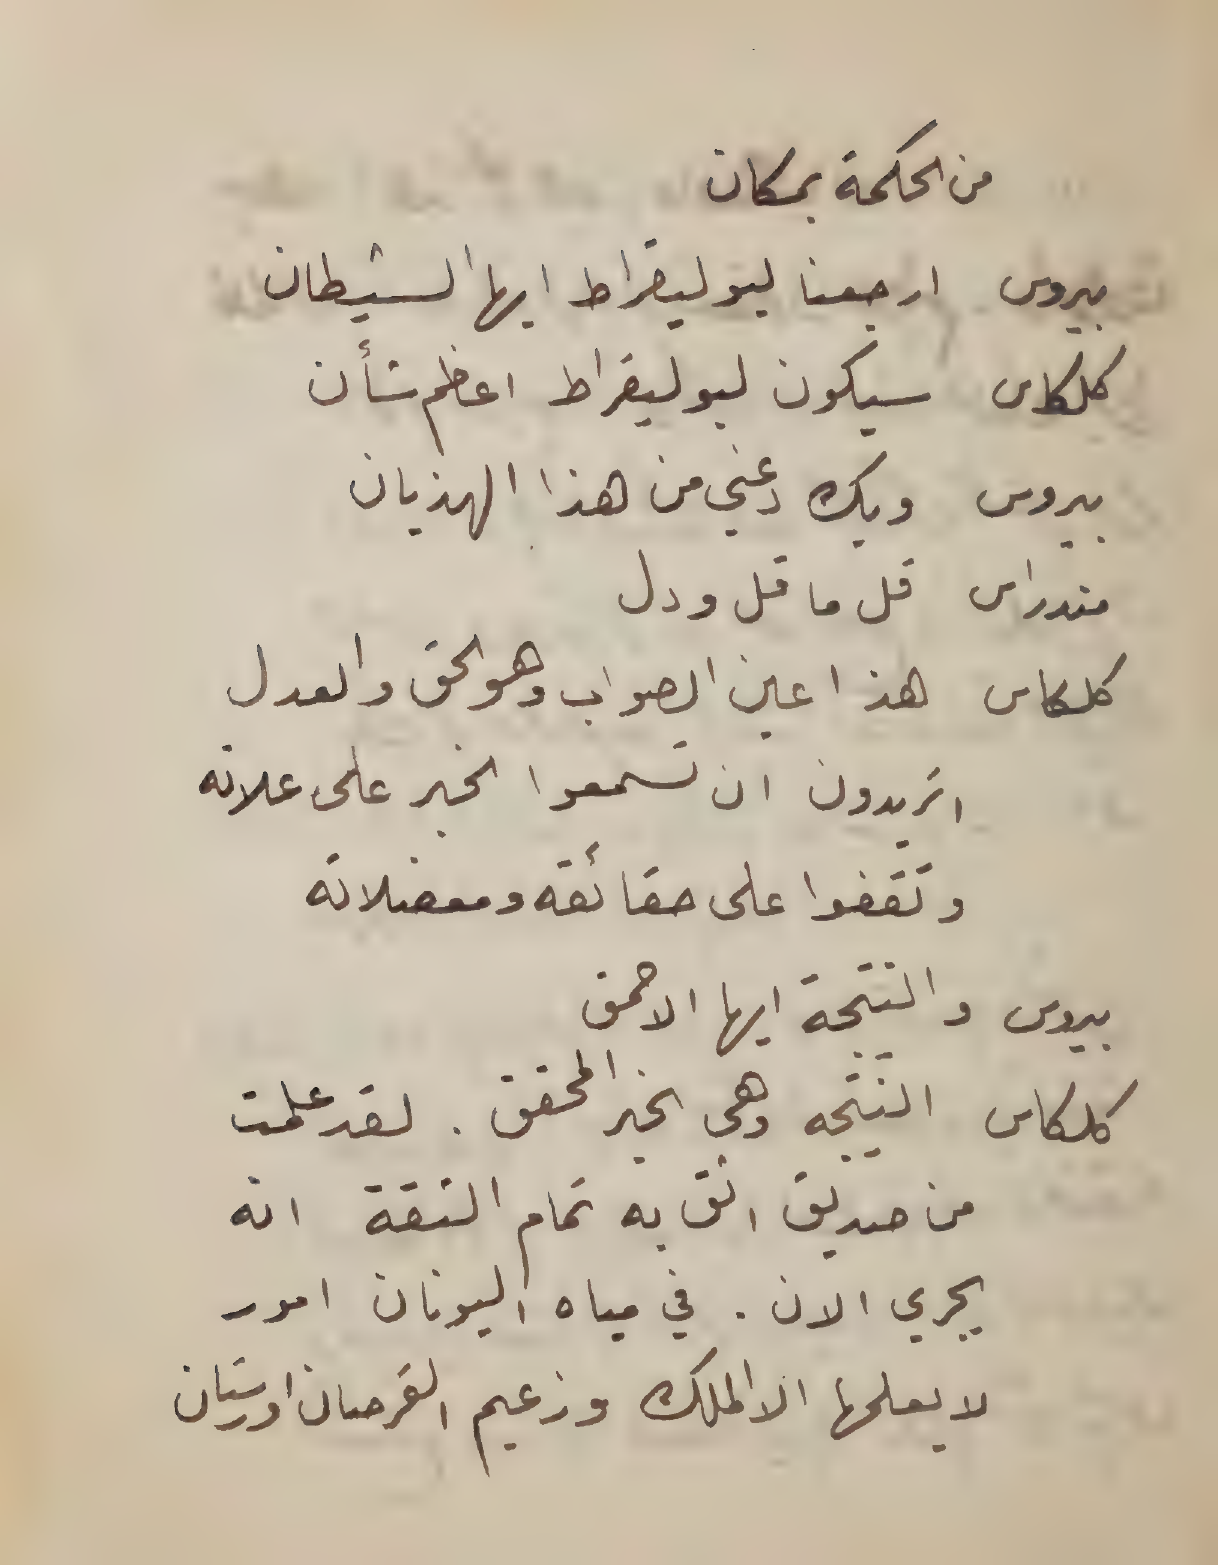 من الحكمة بمكان
بيروس ارجعنا لبوليقراط ايها الشيطان
كلكاس سيكون لبوليقراط اعظم شأن
بيروس ويك دعني من هذا الهذيان
مندراس قل ما قل ودل
كلكاس هذا عين الصواب وهو الحق والعدل
اتريدون ان تسمعوا الخبر على علاته
وتقفوا على حقائقه ومعضلاته
بيروس والنتيجة ايها الاحمق
كلكاس النتيجه وهي الخبر المحقق . لقد علمت
من صديق اثق به تمام الثقة انه
يجري الان . في مياه اليونان امور
لا يعلمها الا الملك وزعيم القرصان اورستان